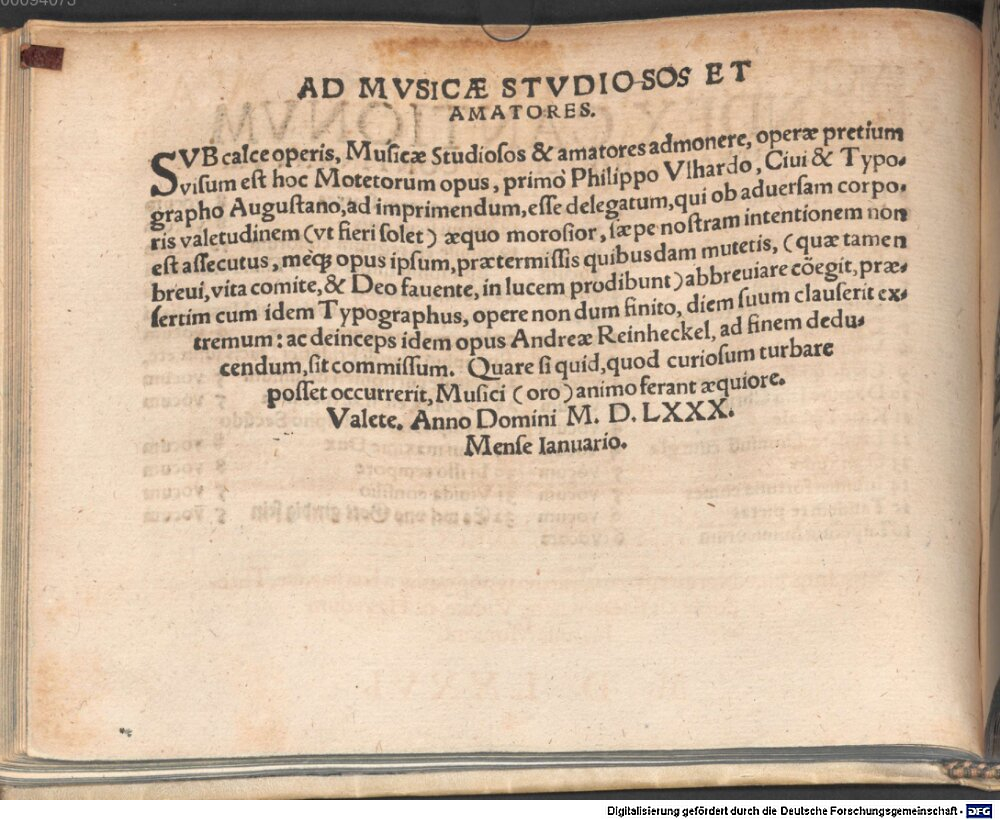 00094075
AD MVSICÆ STVDIOSOS ET
AMATORES.
SVB calce operis, Musicæ Studiosos & amatores admonere, operæ pretium
visum est hoc Motetorum opus, primò Philippo Vlhardo, Ciui & Typo-
grapho Augustano, ad imprimendum, esse delegatum, qui ob aduersam corpo-
ris valetudinem (vt fieri solet) æquo morosior, sæpe nostram intentionem non
est assecutus, meq́; opus ipsum, prætermissis quibusdam mutetis, (quæ tamen
breui, vita comite, & Deo fauente, in lucem prodibunt) abbreuiare cöegit, præ-
sertim cum idem Typographus, opere non dum finito, diem suum clauserit ex-
tremum: ac deinceps idem opus Andreæ Reinheckel, ad finem dedu-
cendum, sit commissum. Quare si quid, quod curiosum turbare
posset occurrerit, Musici (oro) animo ferant æquiore.
Valete. Anno Domini M. D. LXXX.
Mense Ianuario.
Digitalisierung gefördert durch die Deutsche Forschungsgemeinschaft - DFG